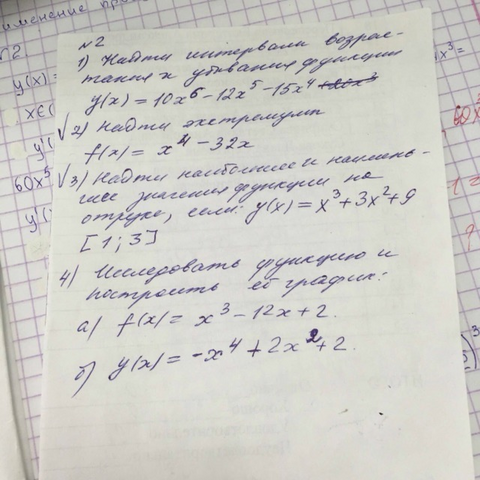 №2
1) Найти интервалы возрас-
тания и убывания функции
y(x) = 10x⁶ - 12x⁵ - 15x⁴ +20x³
√2) Найти экстремумы
f(x) = x⁴ - 32x
√3) Найти наибольшее и наимень-
шее значения функции на
отрезке, если: y(x) = x³ + 3x² + 9
[1; 3]
4) Исследовать функцию и
построить её график:
а) f(x) = x³ - 12x + 2.
б) y(x) = -x⁴ + 2x² + 2.
№2
y(x) =
x∈(
60x⁵